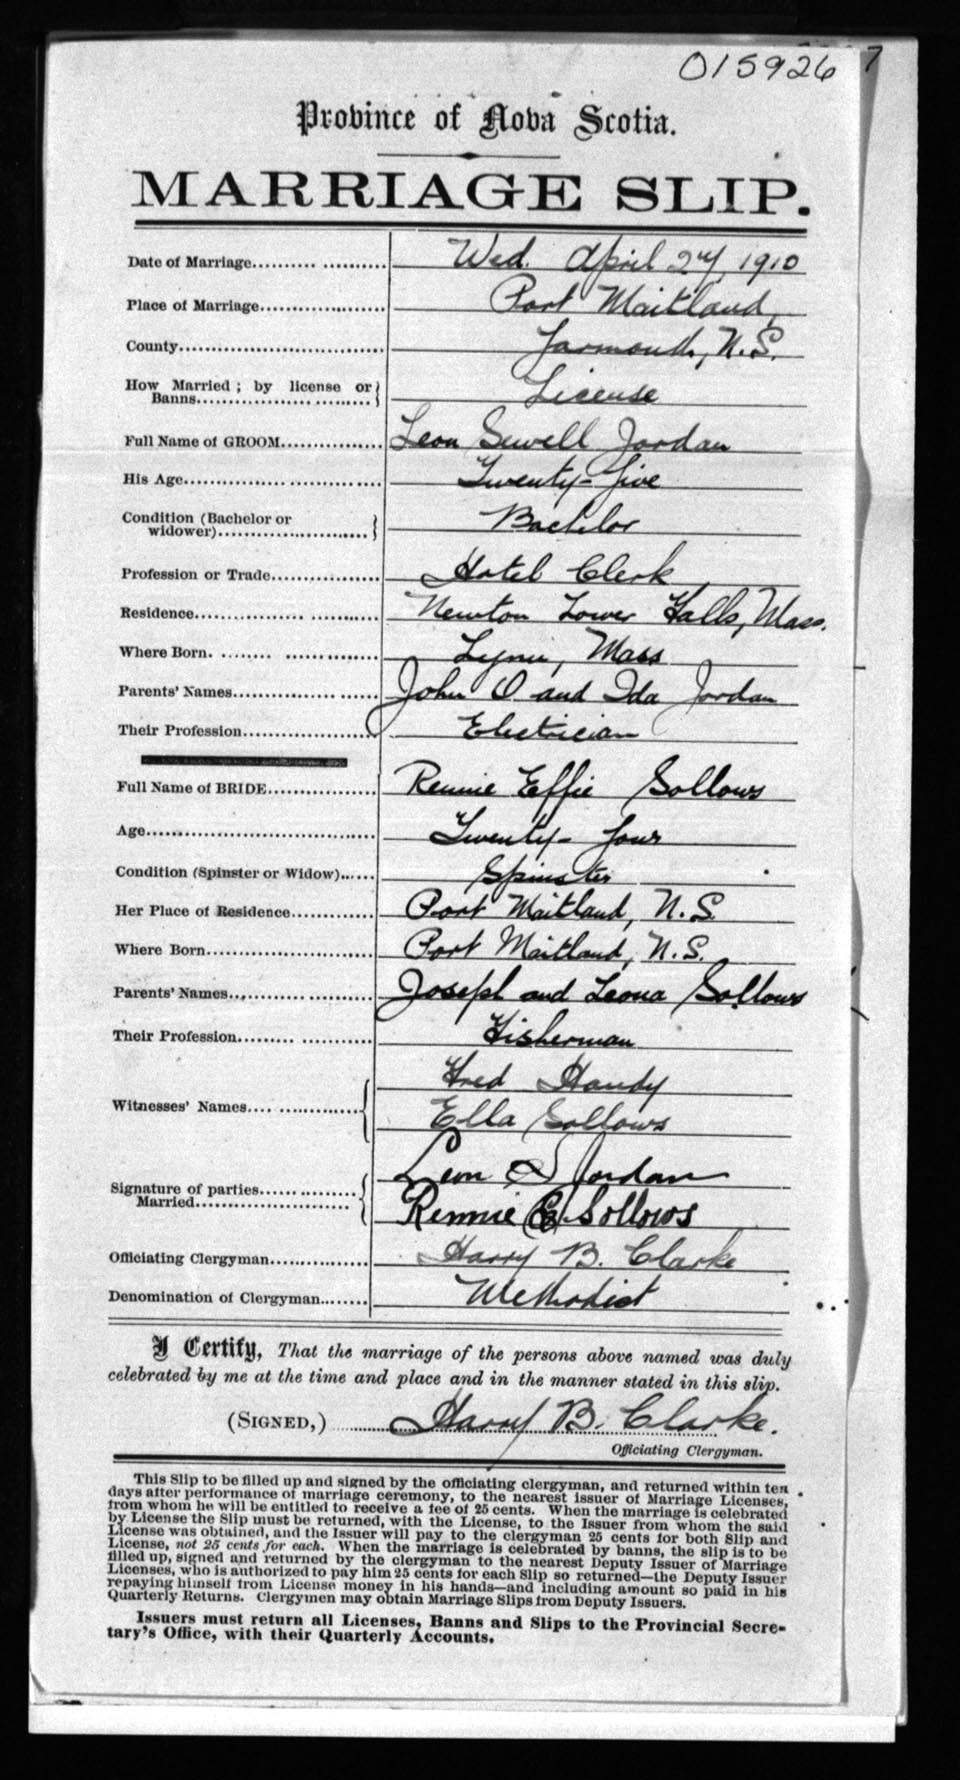 015926
7
Province of Nova Scotia.
MARRIAGE SLIP.
Date of Marriage Wed. April 27, 1910
Place of Marriage Port Maitland,
County Yarmouth, N.S.
How Married; by license or
Banns License
Full Name of GROOM Leon Sewell Jordan
His Age Twenty-five
Condition (Bachelor or
widower) Bachelor
Profession or Trade Hotel Clerk
Residence Newton Lower Falls, Mass.
Where Born. Lynn, Mass
Parents' Names John O and Ida Jordan
Their Profession Electrician
Full Name of BRIDE Rennie Effie Sollows
Age Twenty-four
Condition (Spinster or Widow) Spinster
Her Place of Residence Port Maitland, N.S.
Where Born Port Maitland, N.S.
Parents' Names Joseph and Leona Sollows
Their Profession Fisherman
Witnesses' Names Fred Handy
Ella Sollows
Signature of parties Leon S Jordan
Married Rennie E Sollows
Officiating Clergyman Harry B. Clarke
Denomination of Clergyman Methodist
I Certify, That the marriage of the persons above named was duly
celebrated by me at the time and place and in the manner stated in this slip.
(SIGNED,) Harry B. Clarke.
Officiating Clergyman.
This Slip to be filled up and signed by the officiating clergyman, and returned within ten
days after performance of marriage ceremony, to the nearest issuer of Marriage Licenses,
from whom he will be entitled to receive a fee of 25 cents. When the marriage is celebrated
by License the Slip must be returned, with the License, to the Issuer from whom the said
License was obtained, and the Issuer will pay to the clergyman 25 cents for both Slip and
License, not 25 cents for each. When the marriage is celebrated by banns, the slip is to be
filled up, signed and returned by the clergyman to the nearest Deputy Issuer of Marriage
Licenses, who is authorized to pay him 25 cents for each Slip so returned—the Deputy Issuer
repaying himself from License money in his hands—and including amount so paid in his
Quarterly Returns. Clergymen may obtain Marriage Slips from Deputy Issuers.
Issuers must return all Licenses, Banns and Slips to the Provincial Secre-
tary's Office, with their Quarterly Accounts.